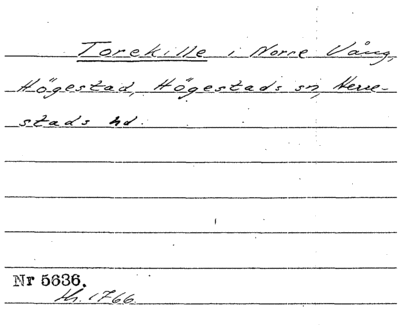 Torekille i Norre Vång,
Högestad, Högestads sn, Herre-
stads hd.
Nr 5636.
th. 1766